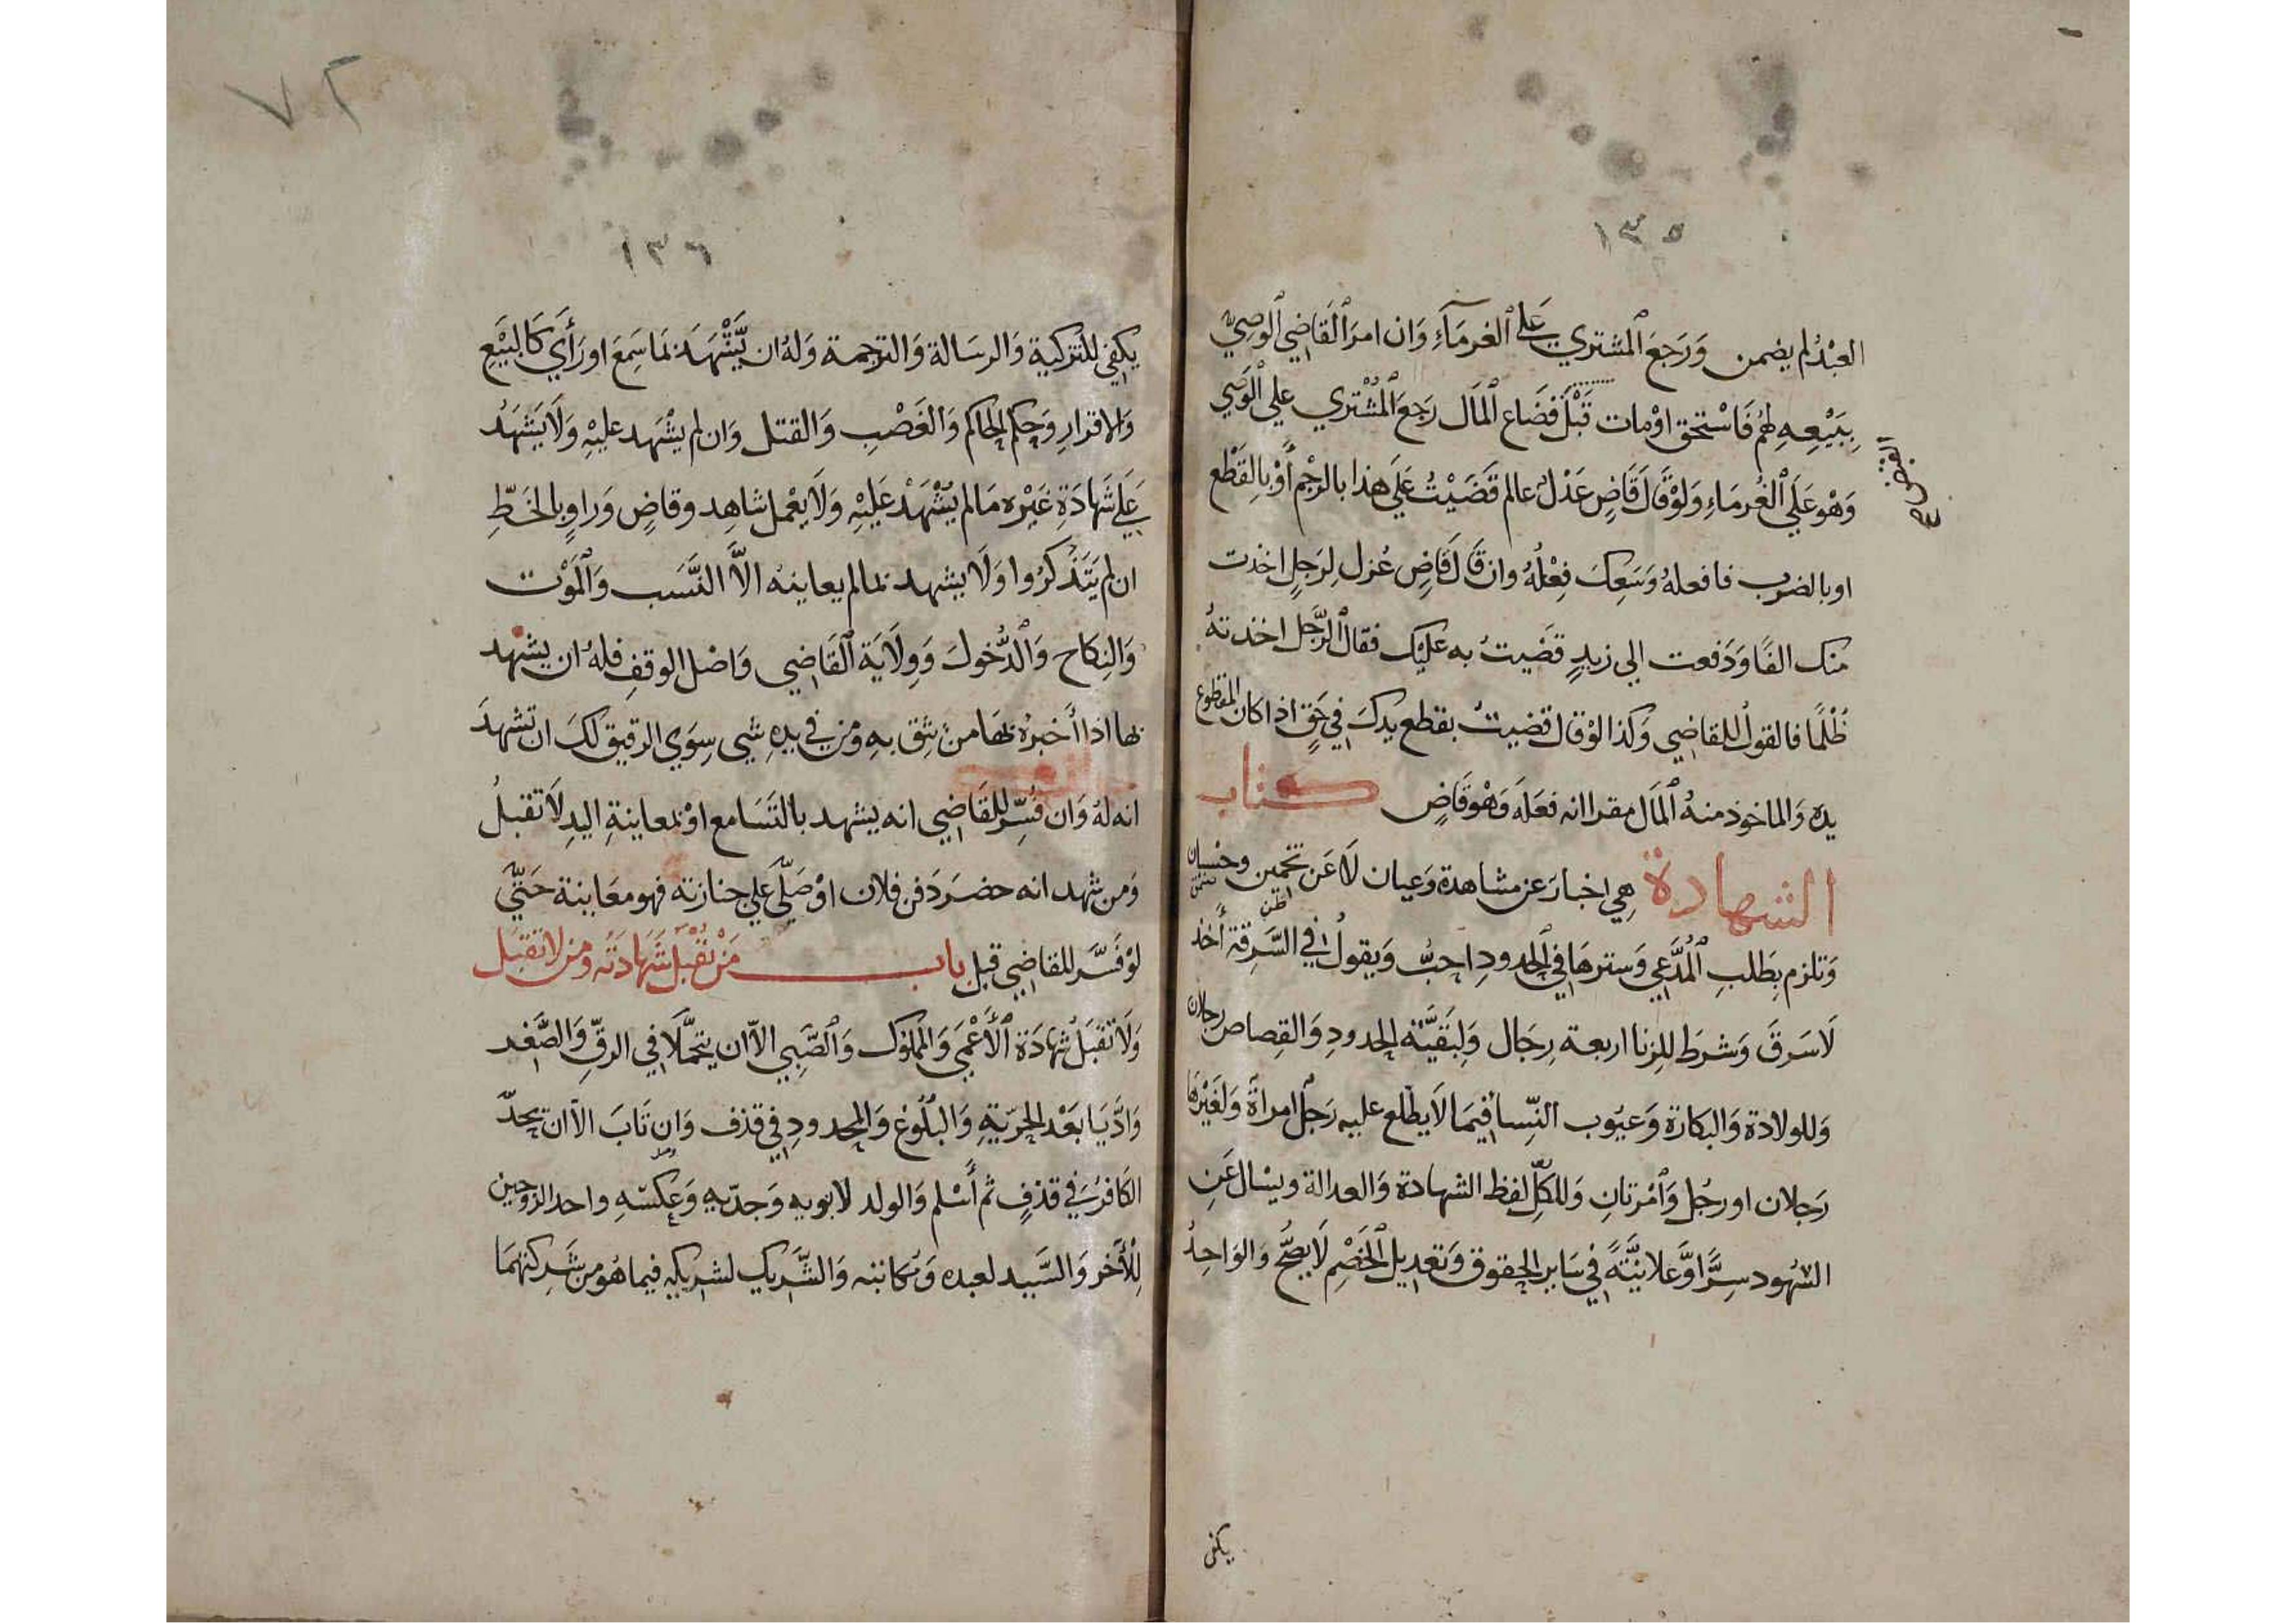 ١٣٥
العبْدُ لم يضمن وَرَجَعَ المشتري عَلى الغرمَآءِ وَان امرَ القَاضِي الوصِيّ
بِبَيْعِهِ لهُمْ فَاسْتحق اوْمات قَبْلَ فَضَاع المَال رَجَعَ المُشْتري علي الوَصِي
القبض صح
وَهْوَ عَلَي الغُرمَاءِ وَلَوْ قَالَ قَاضٍ عَدْل عالم قَضَيْتُ عَلَي هذا بالرجْمِ أَوْ بِالقَطْعِ
او بالضرب فافعلهُ وَسَعِكَ فِعْلُهُ وان قَالَ قَاضٍ عُزل لِرَجلٍ اخذت
منك الفًا وَدَفعت الي زيدٍ قضَيتُ به عليْك فقال الرَّجل اخذتهُ
ظُلْمًا فالقول للقاضي وَكذا لوْ قال قضيتُ بقطع يدكَ في حَقٍ اذا كان المقطوع
يده وَالماخوذ منهُ المَال مقرا انه فعَلهَ وَهْوَ قَاضٍ كتاب
الشهادة هِي اخبارَ عَن مشاهدة وَعيان لاَ عَن تخمين وحسبان
اظن
وَتلزم بِطَلبِ المُدَّعِي وَسترهَا في الحدودِ احبُّ وَيقولُ في السَّرِقة أَخذ
لَا سَرقَ وَشرَط للزنا اربعة رِجَال وَلِبَقيَّة الحدودِ وَالقِصاص رجلان
وَللولادة وَالبكارة وَعيُوب النّسا فيمَا لاَ يطَّلع عليه رَجل امراة وَلغَيْرهَا
رَجلان او رجُل وَامْرتانِ وَللكلّ لفظ الشهادة وَالعدالة ويسْال عَنِ
الشهُود سِرًّا وَّعَلانيَّةً في سَاير الحقوق وَتعديل الخَصْمِ لاَ يصحّ وَالوَاحِدُ
يكفي
٧٢
١٣٦
يكفي للتزكية وَالرسَالة وَالترجمة وَلهُ ان يَّشْهَدَ بمَا سَمِعَ او رَأَي كَالبَيْعِ
وَالاقرارِ وَحكم الحاكم وَالغَصْبِ وَالقتل وَان لم يشْهَد عليْهِ وَلاَ يَشْهَدُ
عَلي شَهادَةِ غَيْره مَا لم يُشْهَدْ عَليْهِ وَلاَ يعْمل شاهِد وقاضٍ وَراوٍ بالخَطِّ
ان لم يَتَذْكرُوا وَلاَ يشهد بما لم يعاينهُ الاَّ النَّسَب وَالمَوْت
وَالنِكاح وَالدُّخولَ وَوِلَايَة القَاضِي وَاصْل الوقفِ فلهُ ان يشهد
بها اذا أَخبرهُ بهَا منْ يثِق بهِ وَمن في يدهِ شي سِوَي الرقيق لكَ ان تشهدَ
انه لهُ وَان فسِّر للقَاضِي انه يشهد بالتَسَامع اوْ بمعاينةِ اليدِ لاَ تقبلُ
وَمن شهد انه حضرَ دَفن فلان اوْ صَلّي عَلي جنازته فهو معَاينة حَتّي
لوْ فَسَّر للقاضِي قبل باب مَنْ تُقْبَلُ شَهَادَتُه وَمن لا تقبَل
وَلاَ تُقبَل شَهَادَة الأَعْمَي وَالمَمْلوُك وَالصَّبِي الاّ ان يتحمَّلاَ في الرقِّ وَالصِّغرِ
وَادَّيَا بَعْد الحُرّيةِ وَالبُلُوغ وَالمحدودِ في قذف وَان تَابَ الاّ ان يحدّ
الكَافرُ في قذفٍ ثم أَسْلم وَالولد لابويه وَجدّيهِ وَعكسهِ واحد الزوجين
لِلأَخر وَالسَّيد لعبده وَمُكاتبه وَالشَّريك لشريكهِ فيما هُو من شَركتهمَا